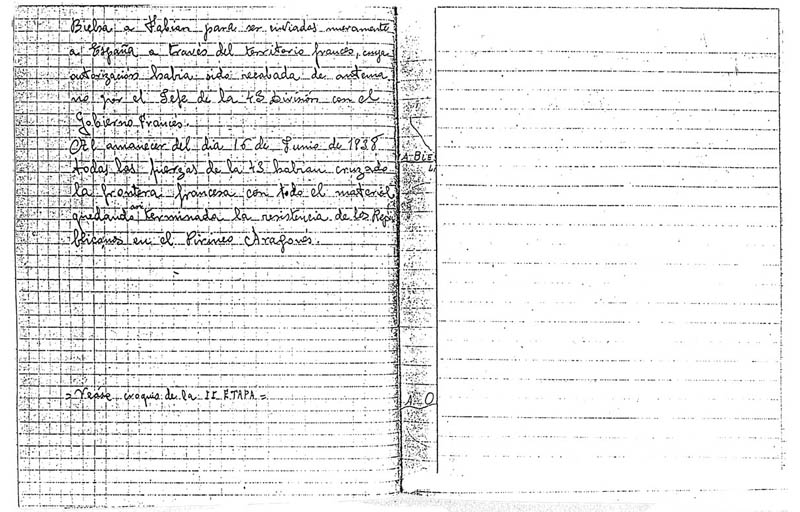 Bielsa a Fabian para ser enviadas nuevamente
a España a través del territorio francés, cuya
autorización habia sido recabada de antema
no por el Jefe de la 43 División con el
Gobierno Francés.
Al amanecer del dia 16 de Junio de 1938
todas las fuerzas de la 43 habian cruzado
la frontera francesa con todo el material
quedando así terminada la resistencia de los Repu
blicanos en el Pirineo Aragonés.
= Véase croquis de la II ETAPA =
A BIE